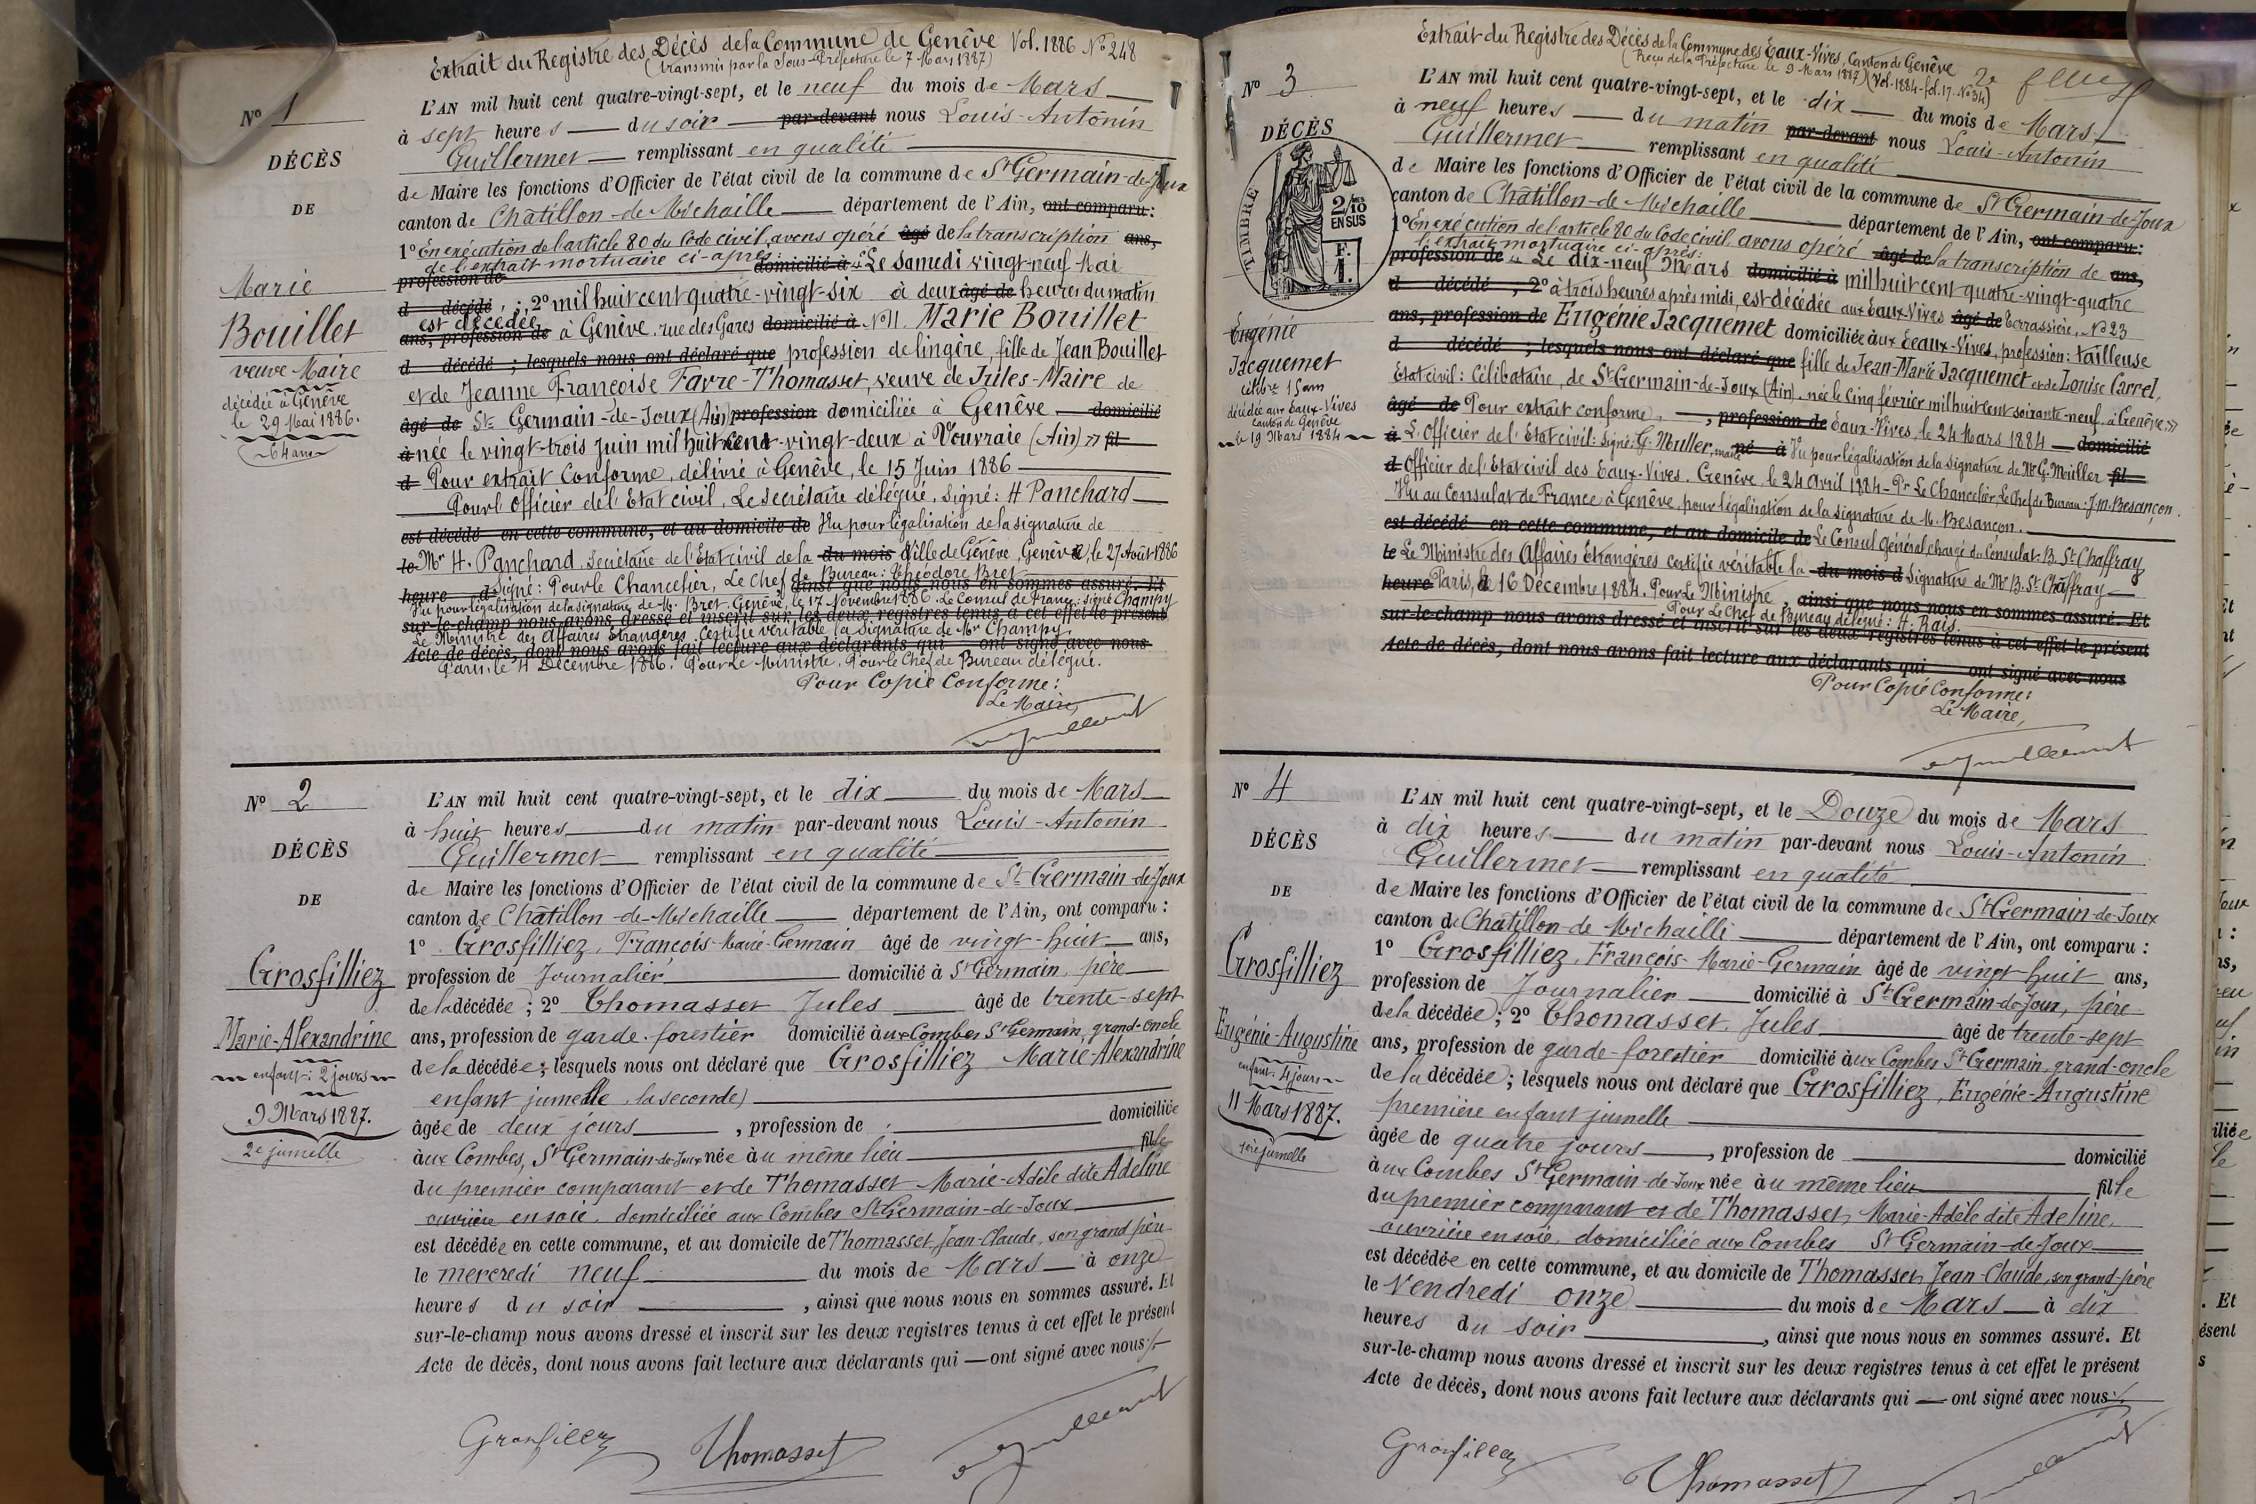 Extrait du Registre des Décès de la Commune de Genève Vol. 1886 No 248
(transmis par la Sous-Préfecture le 7 Mars 1887)
No 1
DÉCÈS
DE
Marie
Bouillet
veuve Maire
décédée à Genève
le 29 Mai 1886.
64 ans
L'AN mil huit cent quatre-vingt-sept, et le neuf du mois de Mars
à sept heures du soir par-devant nous Louis-Antonin
Guillermet remplissant en qualité
de Maire les fonctions d'Officier de l'état civil de la commune de St Germain-de-Joux
canton de Châtillon-de-Michaille département de l'Ain, ont comparu :
1º En exécution de l'article 80 du Code civil, avons opéré âgé de la transcription ans,
de l'extrait mortuaire ci-après :
profession de domicilié à « Le Samedi vingt-neuf Mai
d décédé ; 2º mil huit cent quatre-vingt-six à deux âgé de heures du matin
est décédée
ans, profession de à Genève, rue des Gares domicilié à No 11. Marie Bouillet
d décédé ; lesquels nous ont déclaré que profession de lingère, fille de Jean Bouillet
et de Jeanne Françoise Favre-Thomasset, veuve de Jules-Maire de
âgé de St Germain-de-Joux (Ain) profession domiciliée à Genève domicilié
à née le vingt-trois Juin mil huit cent-vingt-deux à Vouvraie (Ain) » fil
d Pour extrait Conforme, délivré à Genève, le 15 Juin 1886
Pour l'Officier de l'Etat civil, Le secrétaire délégué, signé : H. Panchard
est décédé en cette commune, et au domicile de Vu pour légalisation de la signature de
le Mr H. Panchard, Secrétaire de l'Etat civil de la du mois Ville de Genève, Genève, le 27 Août 1886
heure d Signé : Pour le Chancelier, Le Chef de Bureau : Théodore Bret ainsi que nous nous en sommes assuré. Et
Vu pour légalisation de la signature de M. Bret. Genève, le 17 Novembre 1886. Le Consul de France : signé Champy
sur-le-champ nous avons dressé et inscrit sur les deux registres tenus à cet effet le présent
Le Ministre des Affaires Etrangères certifie véritable la signature de Mr Champy.
Acte de décès, dont nous avons fait lecture aux déclarants qui ont signé avec nous
Paris, le 4 Décembre 1886. Pour Le Ministre, Pour le Chef de Bureau délégué.
Pour Copie Conforme :
Le Maire,
No 2
DÉCÈS
DE
Grosfilliez
Marie-Alexandrine
enfant : 2 jours
9 Mars 1887.
2e jumelle
L'AN mil huit cent quatre-vingt-sept, et le dix du mois de Mars
à huit heures du matin par-devant nous Louis-Antonin
Guillermet remplissant en qualité
de Maire les fonctions d'Officier de l'état civil de la commune de St Germain-de-Joux
canton de Châtillon-de-Michaille département de l'Ain, ont comparu :
1º Grosfilliez, François-Marie-Germain âgé de vingt-huit ans,
profession de Journalier domicilié à St Germain, père
de la décédée ; 2º Thomasset Jules âgé de trente-sept
ans, profession de garde-forestier domicilié aux Combes St Germain, grand-oncle
de la décédée ; lesquels nous ont déclaré que Grosfilliez Marie-Alexandrine
enfant jumelle, la seconde)
âgée de deux jours , profession de domiciliée
aux Combes, St Germain-de-Joux née au même lieu fille
du premier comparant et de Thomasset Marie-Adèle dite Adeline
ouvrière en soie, domiciliée aux Combes St Germain-de-Joux
est décédée en cette commune, et au domicile de Thomasset, Jean-Claude, son grand père
le mercredi neuf du mois de Mars à onze
heures du soir , ainsi que nous nous en sommes assuré. Et
sur-le-champ nous avons dressé et inscrit sur les deux registres tenus à cet effet le présent
Acte de décès, dont nous avons fait lecture aux déclarants qui ont signé avec nous
Grosfillez Thomasset
Extrait du Registre des Décès de la Commune des Eaux-Vives, Canton de Genève
(Reçu de la Préfecture le 9 Mars 1887) (Vol. 1884-fol. 17. No 34)
2e
No 3
DÉCÈS
TIMBRE
2/10 EN SUS
F.
1.
Eugénie
Jacquemet
célibre 15 ans
décédée aux Eaux-Vives
canton de Genève
le 19 Mars 1884
L'AN mil huit cent quatre-vingt-sept, et le dix du mois de Mars
à neuf heures du matin par-devant nous Louis-Antonin
Guillermet remplissant en qualité
de Maire les fonctions d'Officier de l'état civil de la commune de St Germain-de-Joux
canton de Châtillon-de-Michaille département de l'Ain, ont comparu :
1º En exécution de l'article 80 du Code civil avons opéré âgé de la transcription de ans,
l'extrait mortuaire ci-après :
profession de « Le dix-neuf Mars domicilié à mil huit cent quatre-vingt-quatre
d décédé ; 2º à trois heures après midi, est décédée aux Eaux-Vives âgé de Terrassière, No 23
ans, profession de Eugénie Jacquemet domiciliée aux Eeaux-Vives, profession : tailleuse
d décédé ; lesquels nous ont déclaré que fille de Jean-Marie Jacquemet et de Louise Carrel,
Etat civil : Célibataire, de St Germain-de-Joux (Ain), née le Cinq février mil huit cent soixante-neuf, à Genève »
âgé de Pour extrait conforme. , profession de Eaux-Vives, le 24 Mars 1884 domicilié
à L'Officier de l'Etat civil : Signé : G. Muller, maire né à Vu pour légalisation de la signature de Mr G. Müller fil
d Officier de l'Etat civil des Eaux-Vives. Genève, le 24 Avril 1884 - Pr Le Chancelier, Le Chef de Bureau : J.M. Besançon.
Vu au Consulat de France à Genève, pour légalisation de la signature de M. Besançon.
est décédé en cette commune, et au domicile de Le Consul Général chargé du Consulat : B. St Chaffray
le Le Ministre des Affaires Etrangères certifie véritable la du mois d Signature de Mr B. St Chaffray
heure Paris, le 16 Décembre 1884. Pour Le Ministre , ainsi que nous nous en sommes assuré. Et
Pour Le Chef de Bureau délégué : H. Rais.
sur-le-champ nous avons dressé et inscrit sur les deux registres tenus à cet effet le présent
Acte de décès, dont nous avons fait lecture aux déclarants qui ont signé avec nous
Pour Copie Conforme :
Le Maire,
No 4
DÉCÈS
DE
Grosfilliez
Eugénie-Augustine
enfant : 4 jours
11 Mars 1887.
1ère jumelle
L'AN mil huit cent quatre-vingt-sept, et le Douze du mois de Mars
à dix heures du matin par-devant nous Louis-Antonin
Guillermet remplissant en qualité
de Maire les fonctions d'Officier de l'état civil de la commune de St Germain-de-Joux
canton de Châtillon-de-Michailli département de l'Ain, ont comparu :
1º Grosfilliez, François-Marie-Germain âgé de vingt huit ans,
profession de Journalier domicilié à St Germain-de-Joux, père
de la décédée ; 2º Thomasset, Jules âgé de trente-sept
ans, profession de garde-forestier domicilié aux Combes St Germain, grand-oncle
de la décédée ; lesquels nous ont déclaré que Grosfilliez, Eugénie-Augustine
première enfant jumelle
âgée de quatre jours , profession de domicilié
aux Combes St Germain-de-Joux née au même lieu fille
du premier comparant et de Thomasset, Marie-Adèle dite Adeline,
ouvrière en soie, domiciliée aux Combes St Germain-de-Joux
est décédée en cette commune, et au domicile de Thomasset, Jean-Claude, son grand-père
le Vendredi onze du mois de Mars à dix
heures du soir , ainsi que nous nous en sommes assuré. Et
sur-le-champ nous avons dressé et inscrit sur les deux registres tenus à cet effet le présent
Acte de décès, dont nous avons fait lecture aux déclarants qui ont signé avec nous
Grosfillez Thomasset